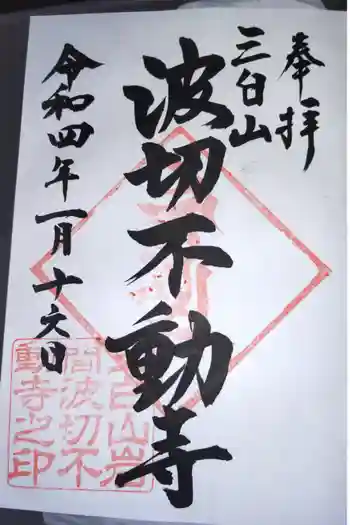 奉拝
三白山
波切不動寺
令和四年一月十六日
白山岩
間波切不
動寺之印